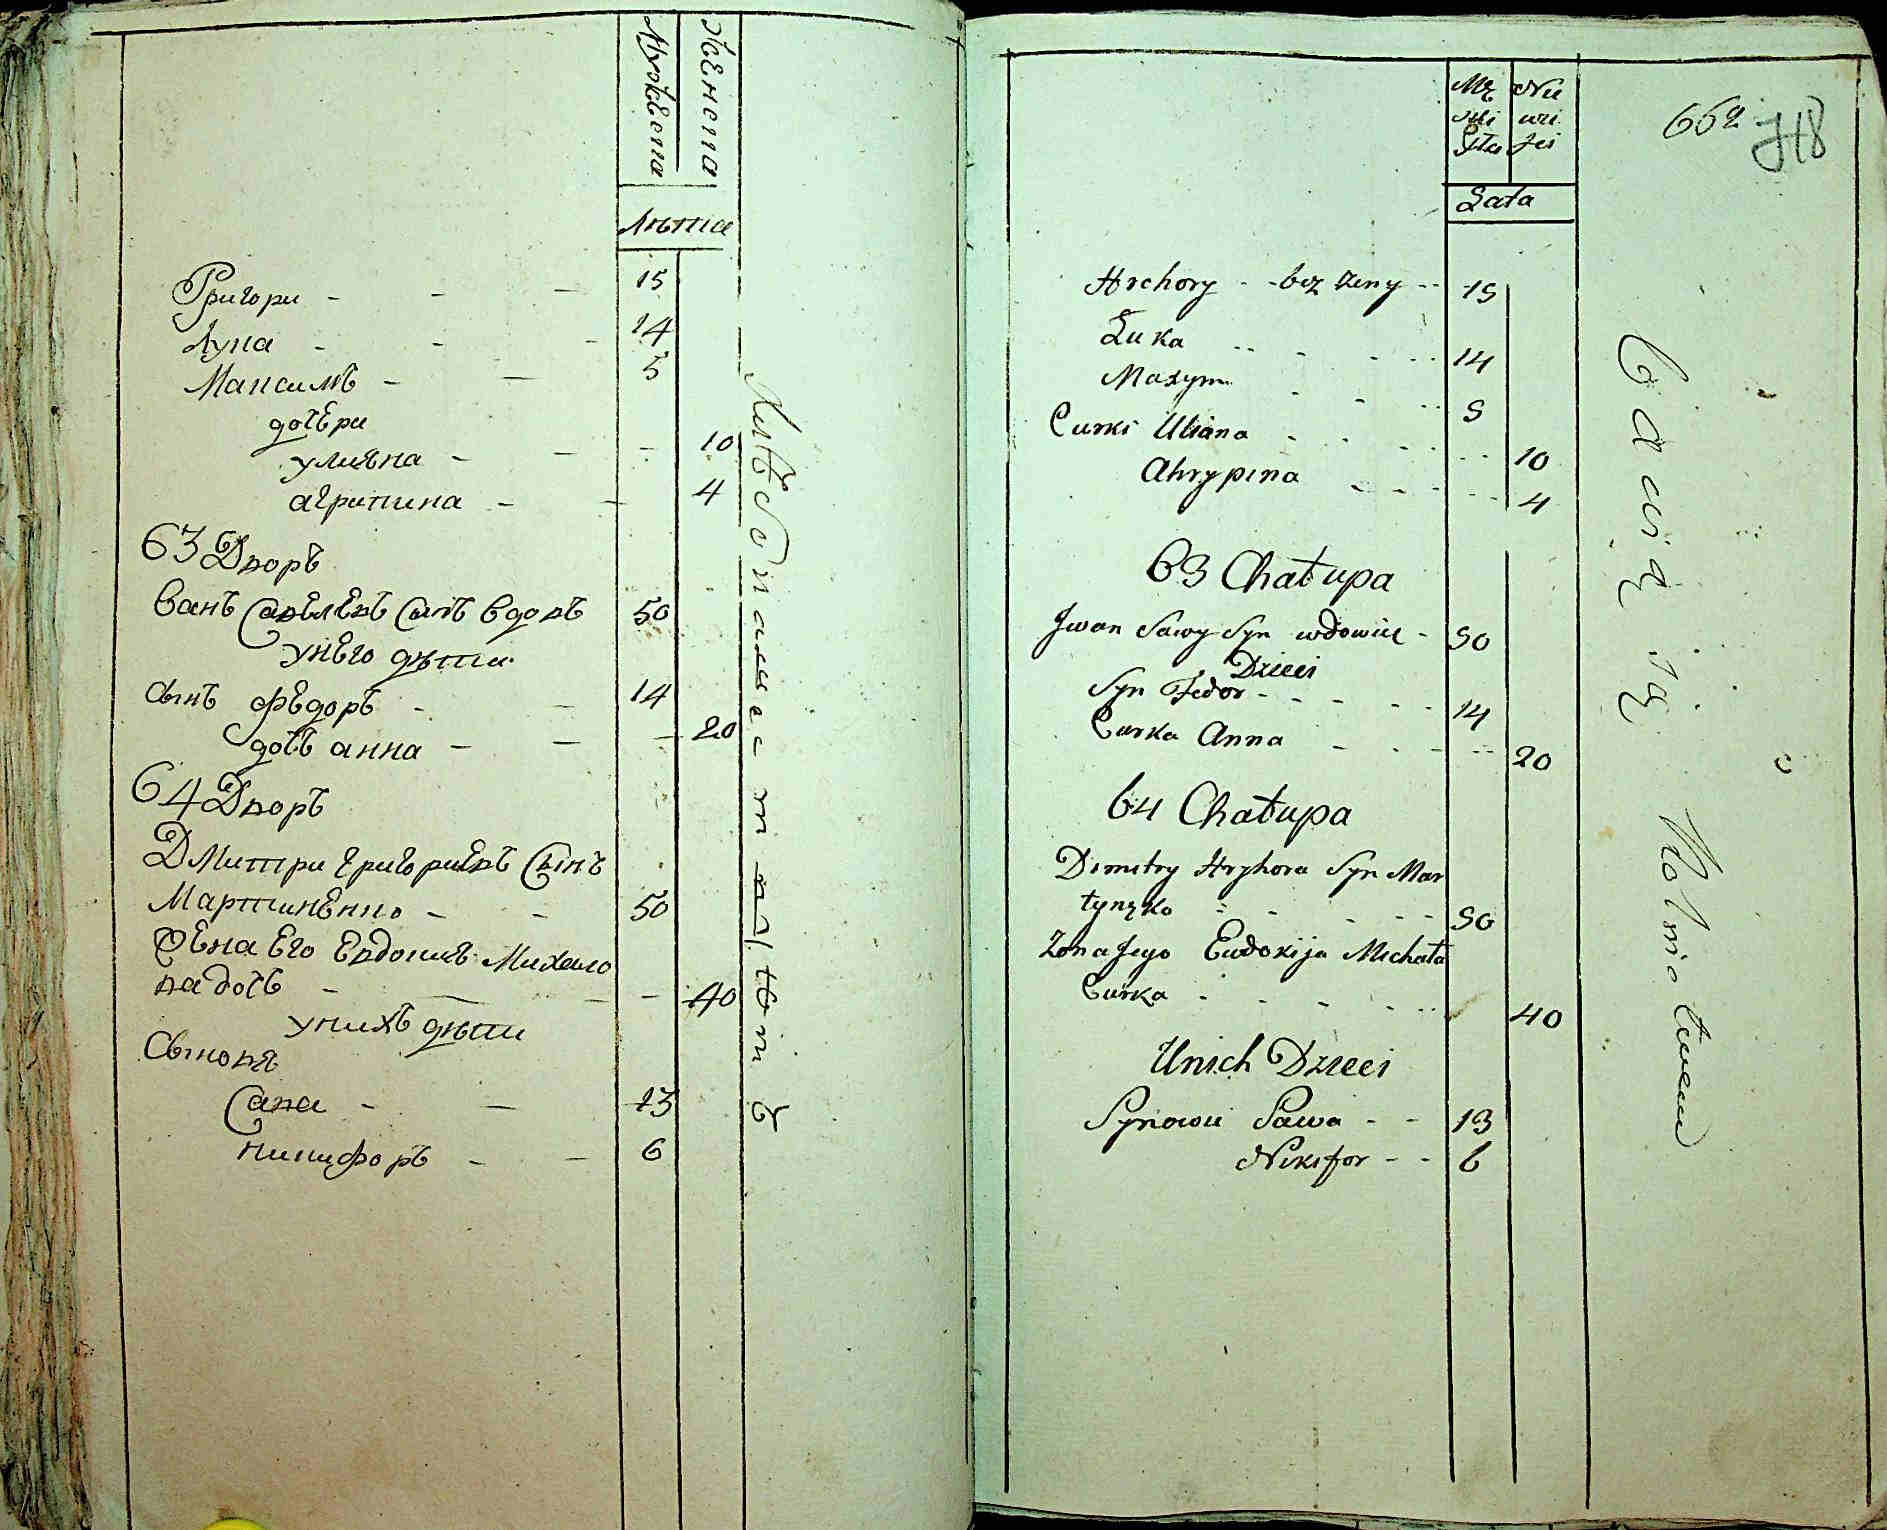 Мужеска
Женска
Лѣта
Григори - - - 15
Лука - - - 14
Максимъ - - 5
дочери
улияна - - - 10
агрипина - - 4
63 Дворъ
Иванъ Савелевъ Синъ вдовъ 50
унего дѣти
Сынъ Федоръ - - 14
дочь анна - - - 20
64 Дворъ
Дмитри григориевъ Сынъ
Мартиненко - - 50
Жена Его Евдокия Михайло
ва дочь - - - - 40
унихъ дѣти
Сыновя
Сава - - 13
никифоръ - - 6
Хлебопашествуютъ
Mę Nie
ski wie
Sta Jei
Lata
652
718
Hrehory - - bez żeny - - 15
Łuka - - - - 14
Maxym - - - 5
Curki Uliana - - - - 10
Ahrypina - - - - 4
63 Chałupa
Jwan Sawy Syn wdowiec - 50
Dzieci
Syn Fedor - - - - 14
Curka Anna - - - - 20
64 Chałupa
Dimitry Hryhora Syn Mar
tynęko - - - - 50
Zona Jego Ewdokija Michała
Curka - - - - 40
Unich Dzieci
Synowie Sawa - - 13
Nikifor - - 6
bawią się Rolnictwem